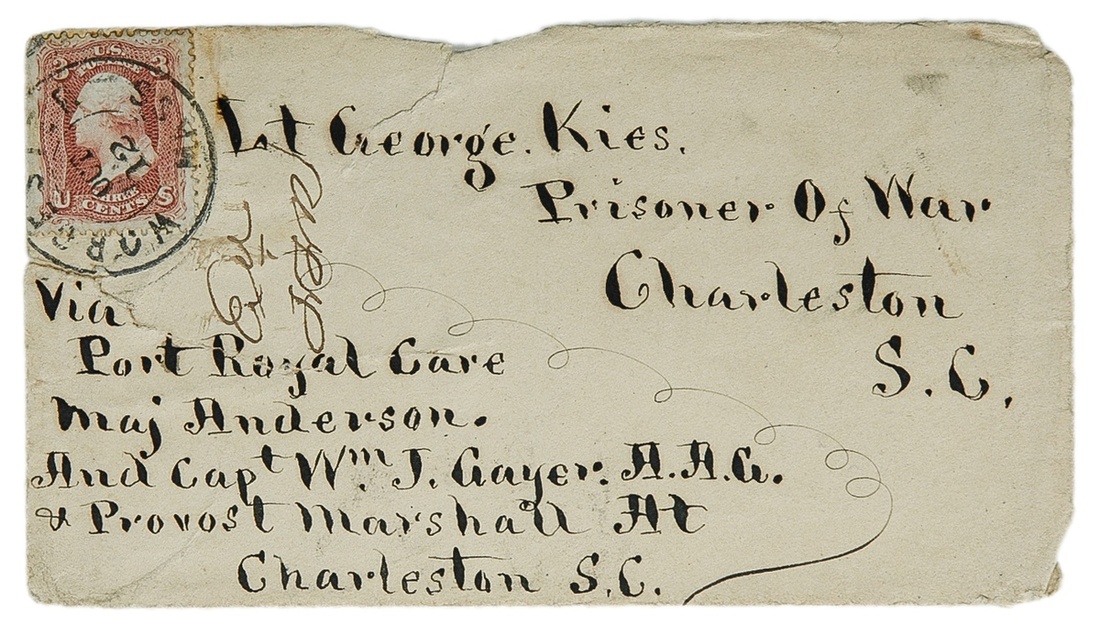 3 U.S. 3
POSTAGE
THREE
U CENTS S
Lt George. Kies.
Prisoner Of War
Charleston
S. C.
Via
Port Royal Care
Maj Anderson.
And Capt Wm J. Gayer. A.A.G.
& Provost Marshall At
Charleston S.C.